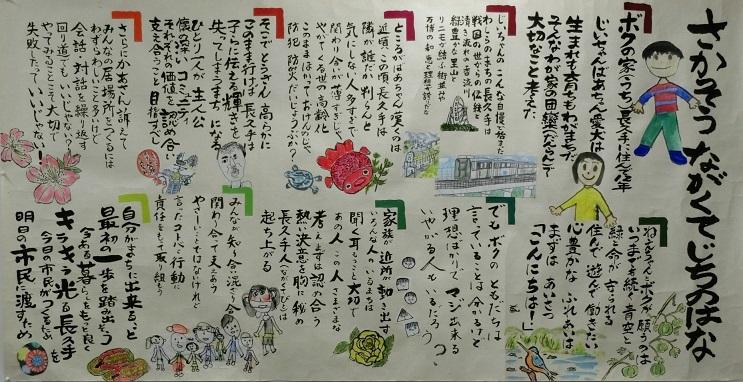 さかそう ながくてじちのはな
ボクの家(うち) 長久手に住んで12年
じいちゃんばあちゃん愛犬は
生まれも育ちもわがまちだ
わが家の団欒(だんらん)で
大切なこと考えた
じいちゃんのこんな自慢で始まった
わしらのまち長久手は
戦国の世からの伝統と
清き流れの香流川
緑豊かな里山と
リニモが結ぶ街並みや
万博の知恵と理想が詰った
ところがばあちゃん嘆くのは
近頃この頃長久手は
隣が誰だか判らんと
気にしない人多すぎて
関わり合いが薄すぎじゃ
やがてくる世の高齢化
このままほかっておけんのじゃ
防犯防火だいじょうぶか?
そこでとうさん高らかに
このまま行けば長久手は
子らに伝える輝きを
失ってしまうまちになる
ひとり一人が主人公
深いコミュニティ
それぞれの価値を認め合い
支え合うことを目指すべし
さらにかあさん訴えて
みんなの居場所をつくるには
わずらわしいこと多いけど
会話・対話を繰り返す
回り道でもいいじゃない?
やってみることこそ大切で
失敗したっていいじゃない!
ねえちゃんとボクが願うのは
いつまでも続く青空と
緑と命が守られる
住んで遊んで働きたい
心豊かなふれあいは
まずはあいさつ
「こんにちは!」
でもボクのともだちは
言っていることは分かるけど
理想ばかりでマジ出来る
いやがる人もいるだろう?
家族が近所が動き出す
いろんな人がいるまちは
聞く耳もつこと大切で
あの人この人さまざまな
考えまずは認め合う
熱い決意を胸に秘め
長久手人(ながくてびと)は
起ち上がる
みんなが知り合い混ざり合い
関わり合って支え合う
やさしいことではないけれど
言ったコトバと行動に
責任をもって取り組もう
自分がまちに出来ること
最初の一歩を踏み出そう
今ある暮らしをもっと良く
キラキラ光る長久手を
今日の市民がつくるため
明日の市民に渡すため